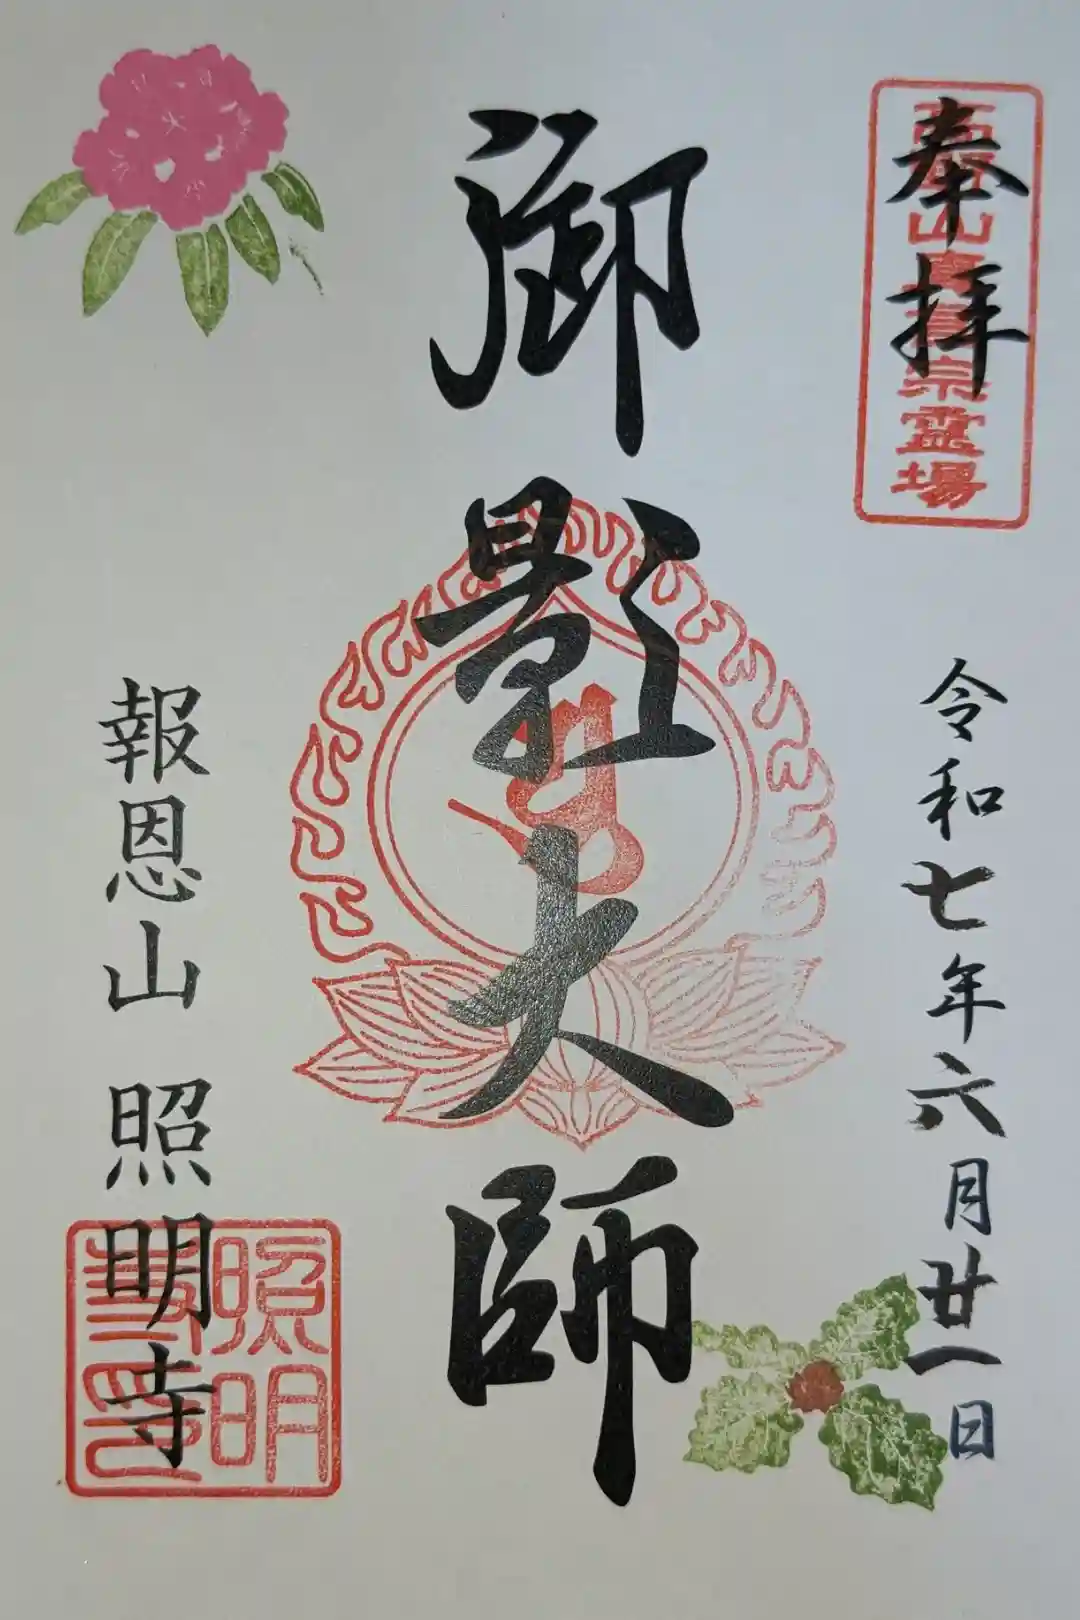 奉拝
山真言宗霊場
令和七年六月廿一日
御影大師
報恩山 照明寺
照明
寺印